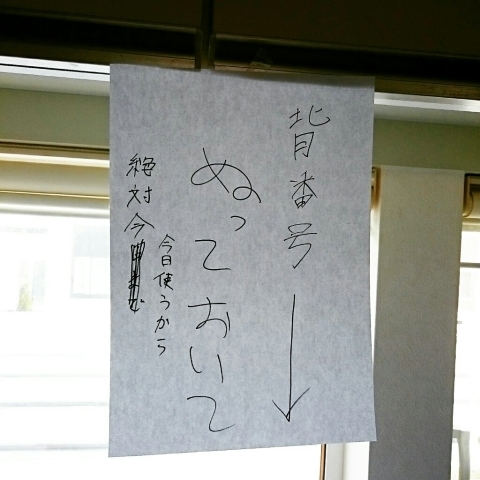 背番号
ぬっておいて
絶対今
今日使うから